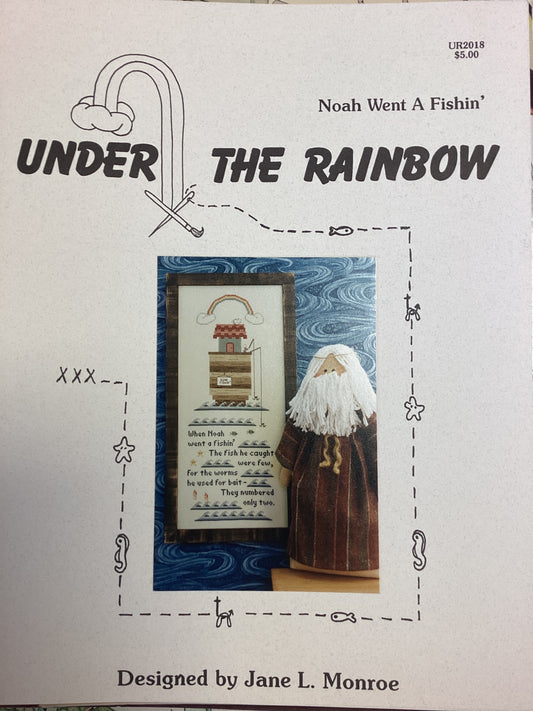 UR2018
$5.00
Noah Went A Fishin'
UNDER THE RAINBOW
XXX
When Noah
went a fishin'
The fish he caught
were few,
For the worms
he used for bait -
They numbered
only two.
Designed by Jane L. Monroe